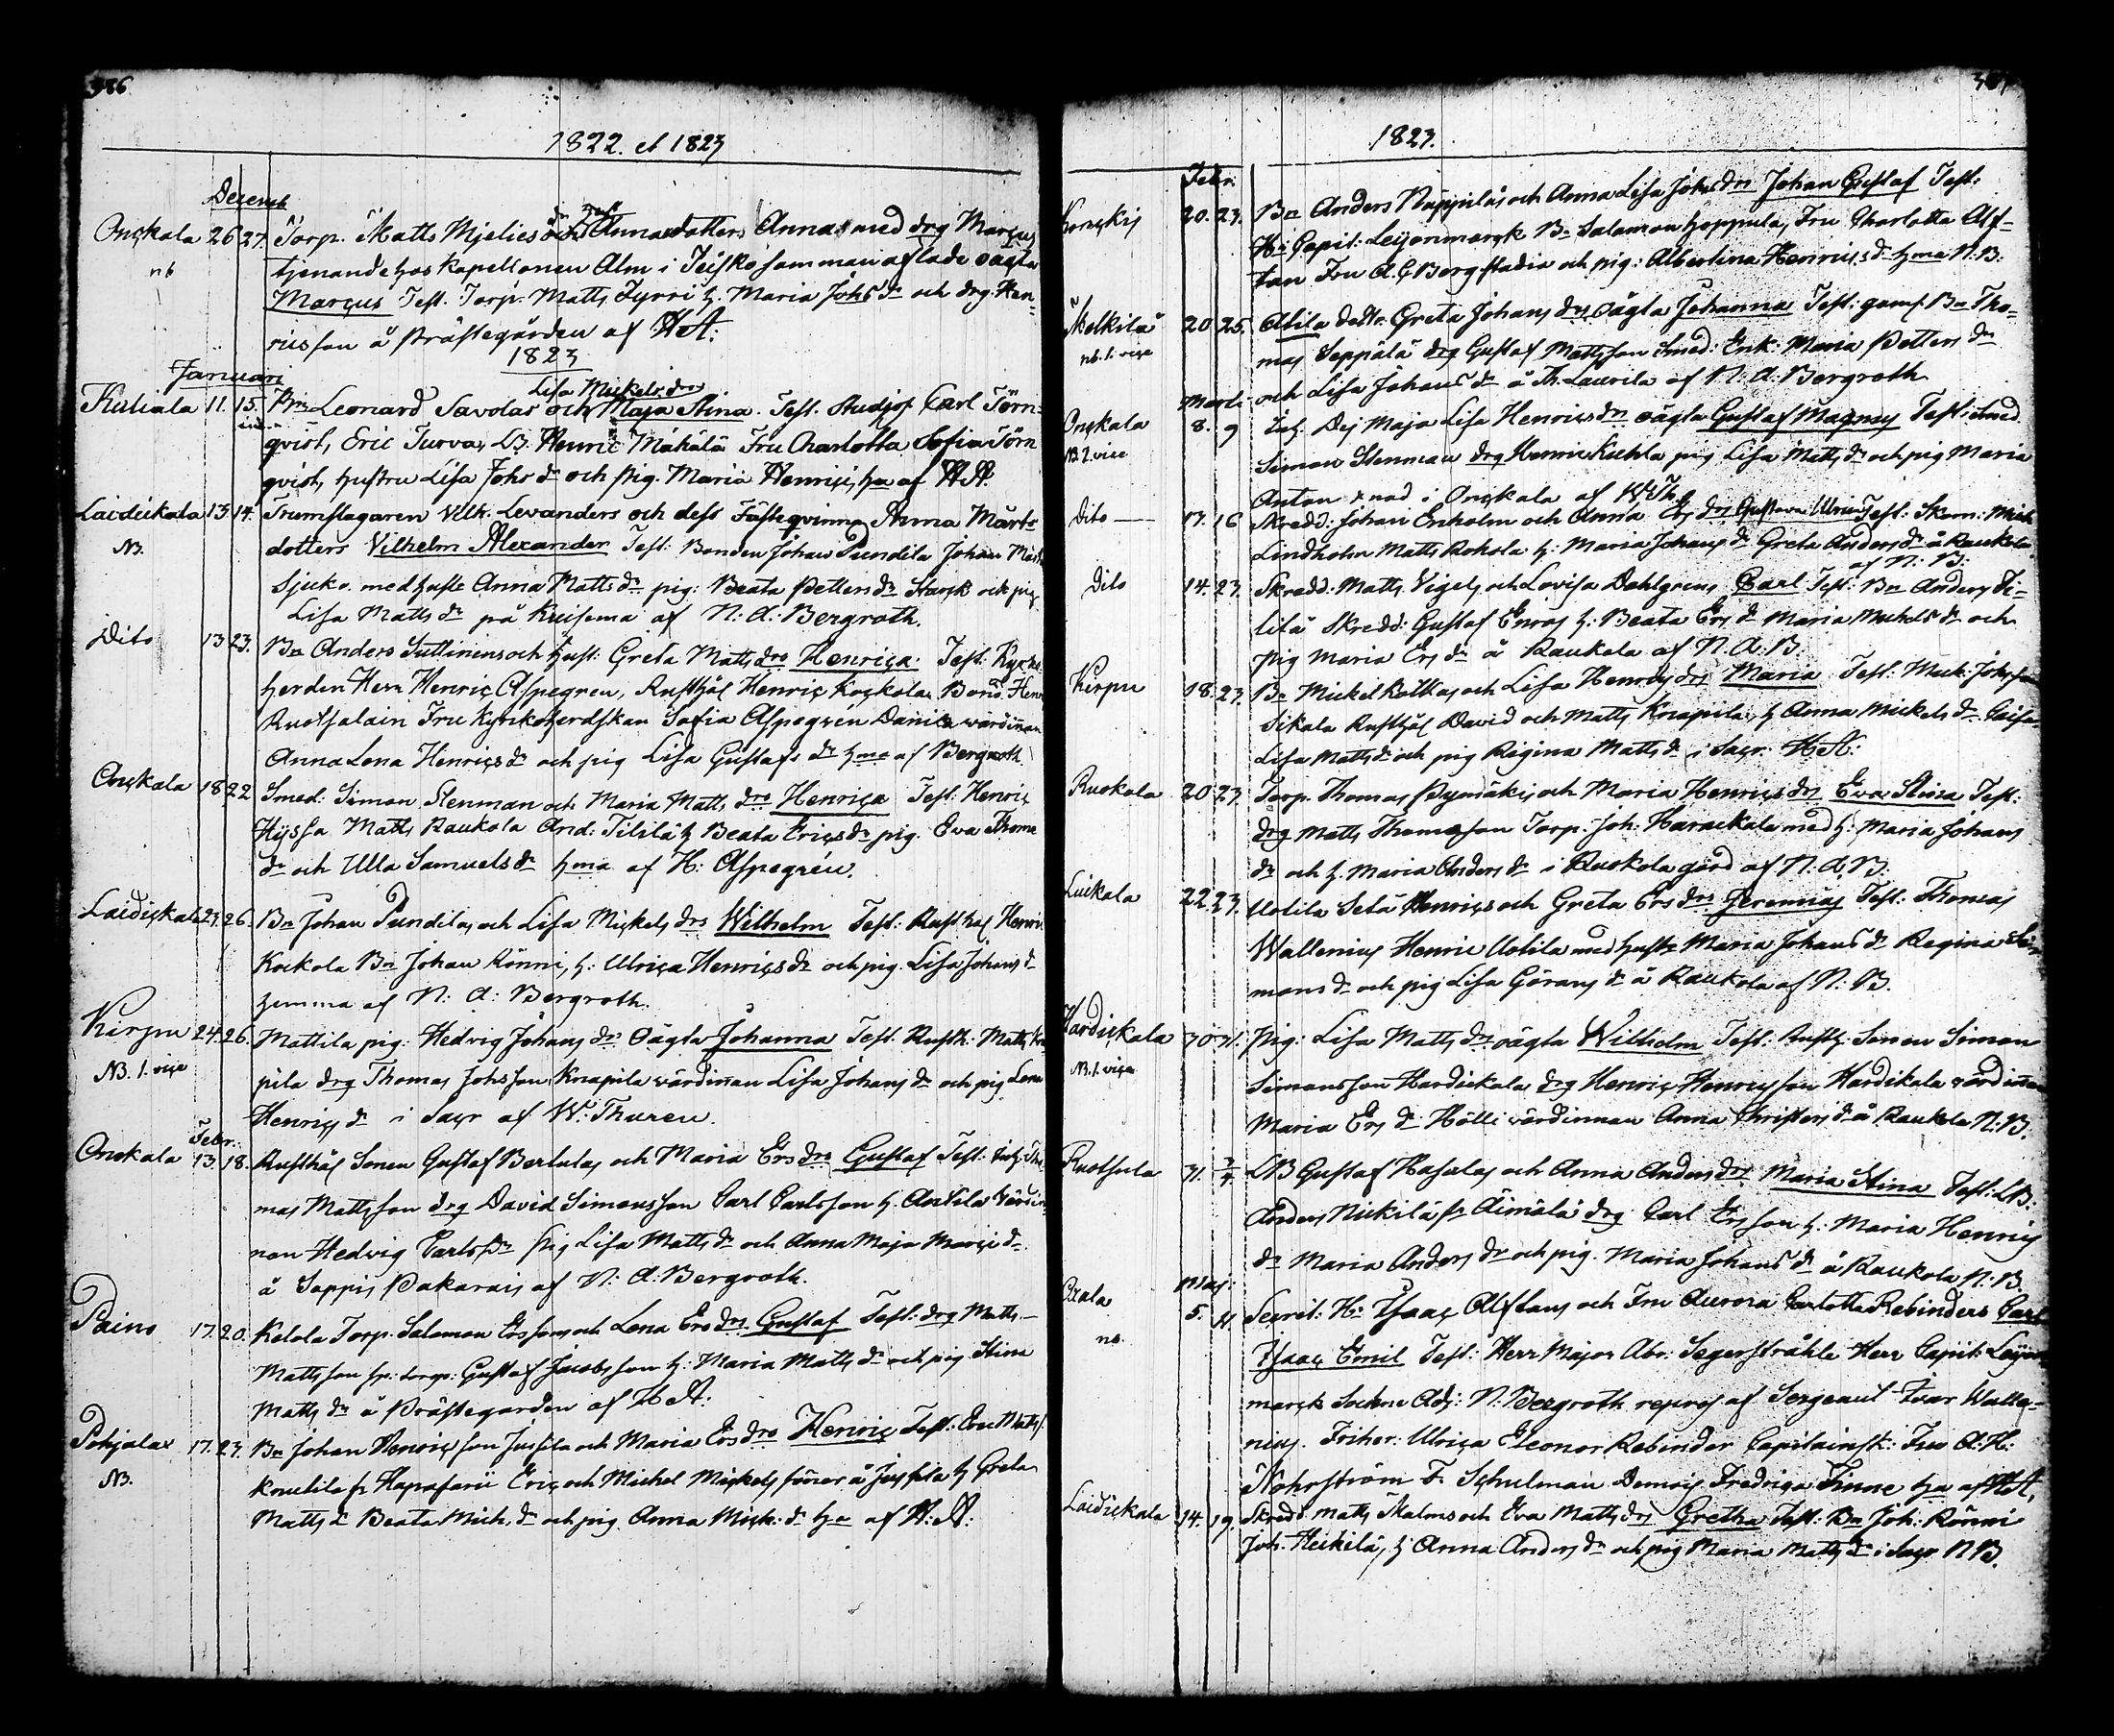 386
1822. et 1823
Decemb
Onckala 26 27. Torp. Matts Mjelies Annas dotters Annas med drg Marcus
nb tjenande hos Kapellanen Alm i Teisko samman aflade oägta
Marcus Test. Torp. Matts Tyrri h. Maria Johs dr och drg. Hen-
ricsson å Prästegården af HA:
1823
Januari
Lisa Mickels dr
Kuliala 11. 15. Bn Leonard Savolas och Maja Stina. Test. Studjos Carl Törn-
qvist, Eric Turva, LB. Henric Mäkälä Fru Charlotta Sofia Törn
qvist, hustru Lisa Johs dr och Pig. Maria Henrics, ha af HA
Laidickala 13. 14. Trumslagaren Vilh. Levanders och dess Fästeqvinna Anna Märts
NB. dotters Vilhelm Alexander Test: Bonden Johan Pundila Johan
Sjuko. med hust Anna Matts dr pig: Beata Petters dr Starck och pig
Lisa Matts dr på Kuisema af N: A: Bergroth.
Dito 13 23. Bn Anders Suttinens och hust: Greta Matts drs Henrica. Test: Kyrko
herden Herr Henric Aspegren, Rusthål Henric Kockola Bond. Henr
Ruotsalain Fru Kyrkoherdskan Sofia Aspegrén Danila wärdinnan
Anna Lena Henrics dr och pig Lisa Gustafs dr hma af Bergroth
Onckala 18 22 Smed: Simon Stenman och Maria Matts drs Henrica Test. Henric
Hyssa Matts Raukola And: Tililä h Beata Erics dr pig. Eva Thoms
dr och Ulla Samuels dr hma af H: Aspegrén.
Laidickala 23. 26. Bn Johan Pundilas och Lisa Mickels drs Wilhelm Test: Rusthål Henric
Kockola Bn Johan Rönni, h: Ulrica Henrics dr och pig. Lisa Johans dr
hemma af N: A: Bergroth.
Kirpu 24. 26. Mattila pig: Hedvig Johans drs Oägta Johanna Test. Rusth: Matts Kna
NB. 1. vice pila drg Thomas Johsson Knapila värdinnan Lisa Johans dr och pig Lena
Henrics dr i Sacr af W: Thuren.
Febr:
Onckala 13. 18. Rusthål Sonen Gustaf Bertulas och Maria Ers drs Gustaf Test. Tho
mas Mattsson drg David Simonsson Carl Carlsson h. Antila Värdin
nan Hedvig Carls dr Pig Lisa Matts dr och Anna Maja Marci dr
å Seppis Pakarais af N: A: Bergroth.
Paino 17. 20. Kelola Torp. Salomon Erssons och Lena Ers drs Gustaf Test: drg Matts
Mattsson Gustaf Jacobsson h: Maria Matts dr och pig Stina
Matts dr å Prästegården af HA:
Pohjala 17. 23. Bn Johan Henricsson Jussila och Maria Ers drs Henric Test. Eric Matts
NB. Knutila fr Hapasarii Eric och Michel Mickels söner å Jussila h Greta
Matts dr Beata Mich. dr och pig. Anna Mich: dr ha af H: A:
1823.
Febr.
20. 23. Bn Anders Näppiläs och Anna Lisa Johs drs Johan Gustaf Test:
Hr Capit: Leijonmarck Bn Salamon Hoppula, Fru Charlotta Alf-
tan Fru A. C Bergstadia och pig: Albertina Henrics dr hma N. B.
Skolkilä 20 25. Atila Greta Johans drs oägta Johanna Test: gam. Bn Tho-
nb. 1. vice mas Seppälä drg Gustaf Mattsson Smed: Enk: Maria Petters dr
och Lisa Johans dr å Th. Laurila af N: A: Bergroth
Marti
Onckala 8. 9 Maja Lisa Henrics drs oägta Gustaf Magnus Test: Smed
NB 2. vice Simon Stenman drg Henric Kuhla pig Lisa Matts dr och pig Maria
Anton i Onckala af W Th.
Dito 13. 16 Skredd: Johan Enholm och Anna Ers drs Gustava Ulrica Test: Skom: Mich
Lindholm Matts Rokola h: Maria Johans dr Greta Anders dr å Raukola
af N: B:
Dito 14. 23. Skredd: Matts Vigels och Lovisa Dahlgrens Carl Test: Bn Anders Ti-
lilä Skredd: Gustaf Enros h: Beata Ers dr Maria Michels dr och
Pig Maria Ers dr å Raukola af N. A. B.
Kirpu 18. 23. Bn Mickel Kolkas och Lisa Henrics drs Maria Test: Mich: Johsson
Sikala Rusthål David och Matts Knapila, h Anna Mickels dr Caisa
Lisa Matts dr och pig Regina Matts dr i Sacr: HA:
Ruokola 20 23. Torp. Thomas Pynnäkis och Maria Henrics drs Eva Stina Test:
drg Matts Thomasson Torp. Joh: Harackala med h: Maria Johans
dr och h. Maria Anders dr i Ruokola gård af N. A. B.
Luikala 22 23. Uotila Setä Henrics och Greta Ers drs Jeremias Test: Thomas
Wallenius Henric Uotila med hustr Maria Johans dr Regina Si-
mons dr och pig Lisa Görans dr å Raukola af N: B.
Hardickala 30 31. Pig: Lisa Matts drs oägta Wilhelm Test: Rusth. Sonen Simon
NB. 1. vice Simonsson Hardickala drg Henric Henricsson Hardikala värdinnan
Maria Ers dr Hölli värdinnan Anna Christers dr å Raukola N: B.
Ruotsula 31. 3/4 LB Gustaf Hasalas och Anna Anders drs Maria Stina Test: LB:
Anders Nickilä fr Äimälä drg Carl Ersson h: Maria Henrics
dr Maria Anders dr och pig. Maria Johans dr å Raukola N: B
Maj:
5. 11. Secret: Hr Isaac Alftans och Fru Aurora Carlotta Rebinders Carl
nb. Isaac Emil Test: Herr Major Abr: Segerstråhle Herr Capit: Leijon
marck Sockne Adj: N: Bergroth repres af Sergeant Ivar Walle-
nius. Friher: Ulrica Eleonor Rebinder Capitainsk: Fru A: H:
Nohrström F. Schulman Demois Fredrica Finne ha af HA,
Laidickala 14. 19. Skredd Matts Skalms och Eva Matts drs Gretha Test. Bn Joh: Rönni
Joh. Heikilä, h Anna Anders dr och pig Maria Matts dr i Sacr NB.